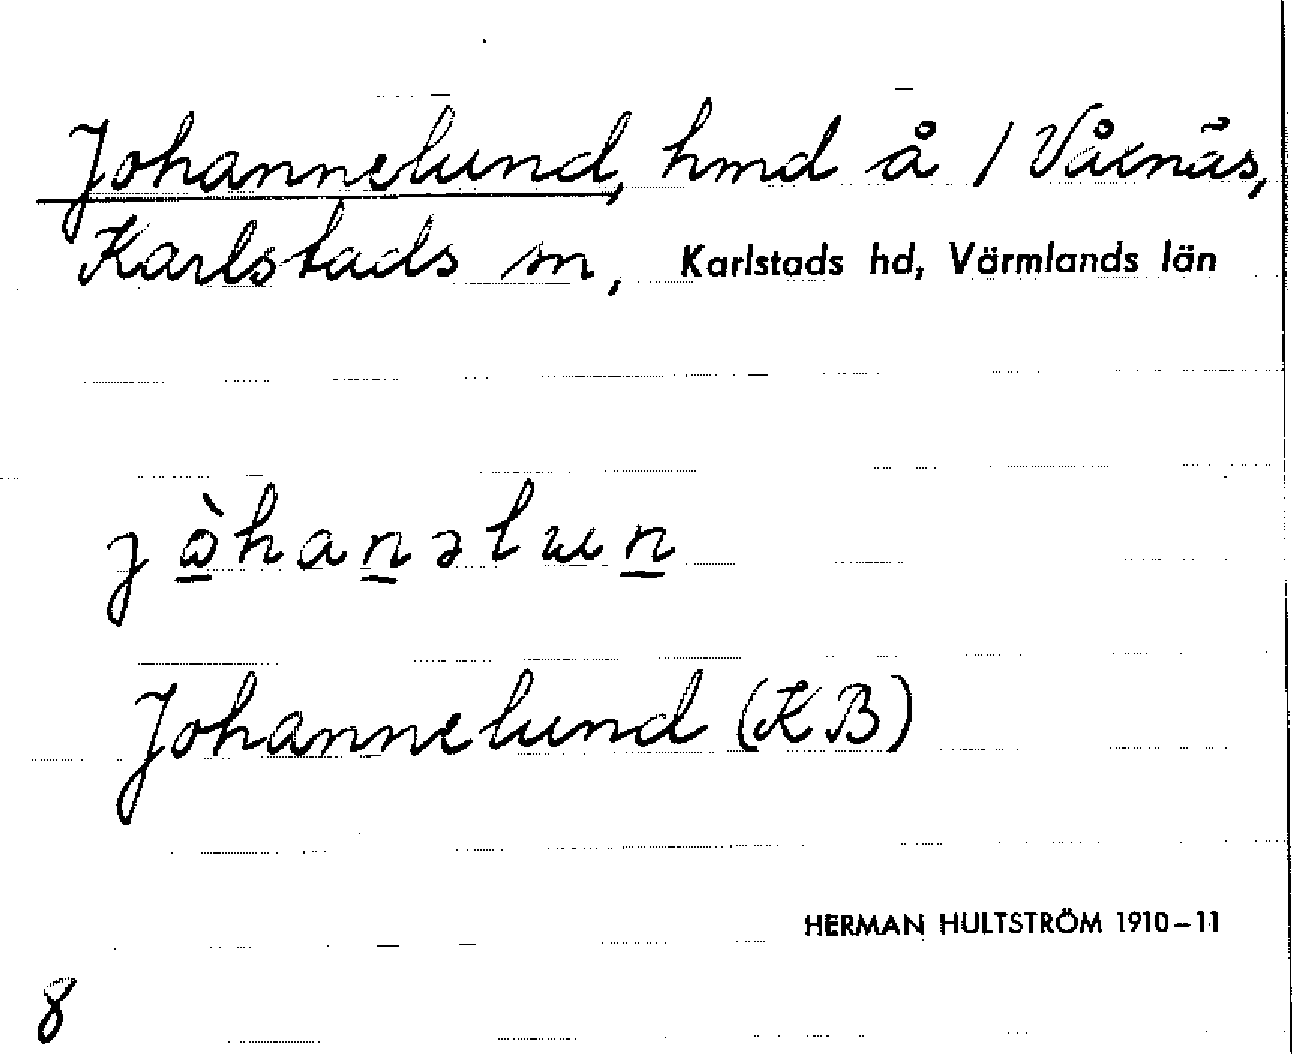 Johannelund, hmd å / Våxnäs,
Karlstads sn, Karlstads hd, Värmlands län
Johannelund (KB)
HERMAN HULTSTRÖM 1910–11
8